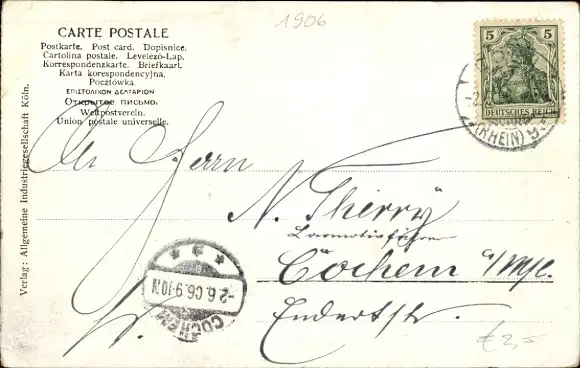 1906
CARTE POSTALE
Postkarte. Post card. Dopisnice.
Cartolina postale. Levelezo-Lap.
Korrespondenzkarte. Briefkaart.
Karta korespondencyjna.
Pocztówka.
ΕΠΙΣΤΟΛΙΚΟΝ ΔΕΛΤΑΡΙΟΝ
Открытое письмо.
Weltpostverein.
Union postale universelle.
5 5
DEUTSCHES REICH
(RHEIN)
Verlag: Allgemeine Industriegesellschaft Köln.
Herrn
N. Thierry
Locomotivführer
Cochem a/Mosel.
Endertstr.
COCHEM
-2.6.06.9-10N
€ 2,-